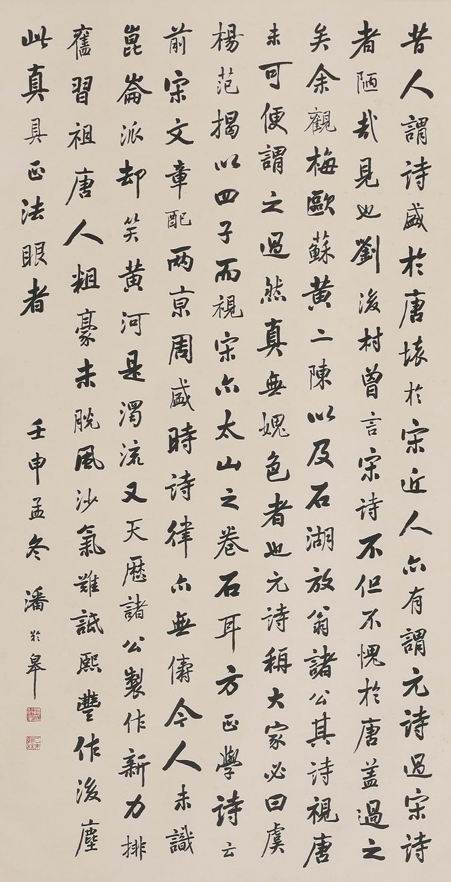 昔人謂詩盛於唐壞於宋近人亦有謂元詩過宋詩
者陋哉見也劉後村曾言宋詩不但不愧於唐蓋過之
矣余觀梅歐蘇黃二陳以及石湖放翁諸公其詩視唐
未可便謂之過然真無媿色者也元詩稱大家必曰虞
楊范揭以四子而視宋亦太山之卷石耳方正學詩云
前宋文章配兩京周盛時詩律亦無儔今人未識
崑崙派却笑黃河是濁流又天歷諸公製作新力排
舊習祖唐人粗豪未脫風沙氣難詆熙豐作後塵
此真具正法眼者
壬申孟冬 潘齡皋